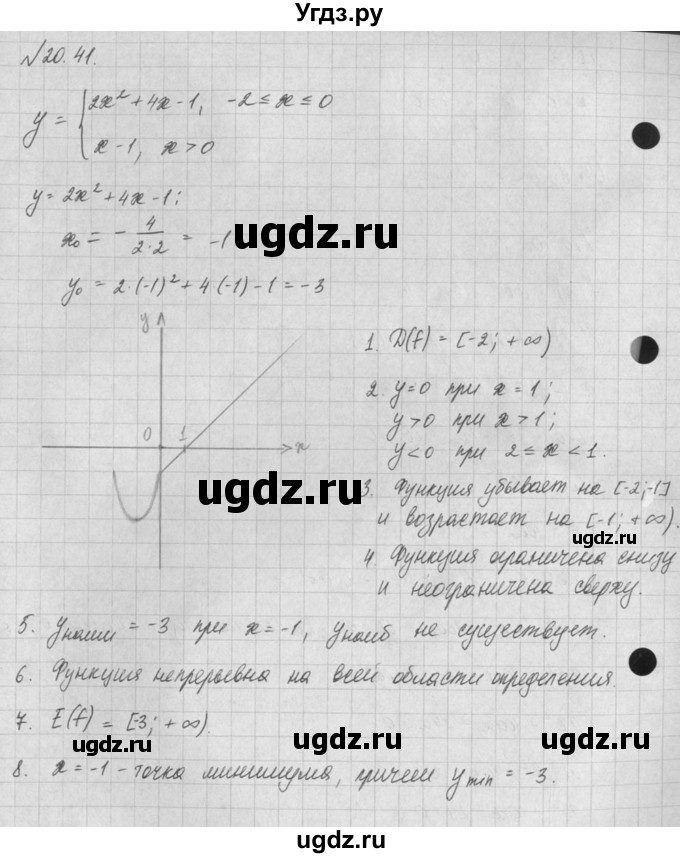 Угдз.ру
№20.41.
y = { 2x² + 4x - 1, -2 ≤ x ≤ 0
x - 1, x > 0
y = 2x² + 4x - 1;
x₀ = - 4/(2·2) = -1
ugdz.ru
y₀ = 2·(-1)² + 4·(-1) - 1 = -3
y
0 1 x
1. D(f) = [-2; +∞)
2. y=0 при x = 1;
y>0 при x > 1;
y<0 при 2 ≤ x < 1.
ugdz.ru
3. Функция убывает на [-2;-1]
и возрастает на [-1; +∞).
4. Функция ограничена снизу
и неограничена сверху.
5. yнаим = -3 при x = -1, yнаиб не существует.
6. Функция непрерывна на всей области определения.
7. E(f) = [-3; +∞).
ugdz.ru ugdz.ru
8. x = -1 - точка минимума, причем ymin = -3.
ugdz.ru